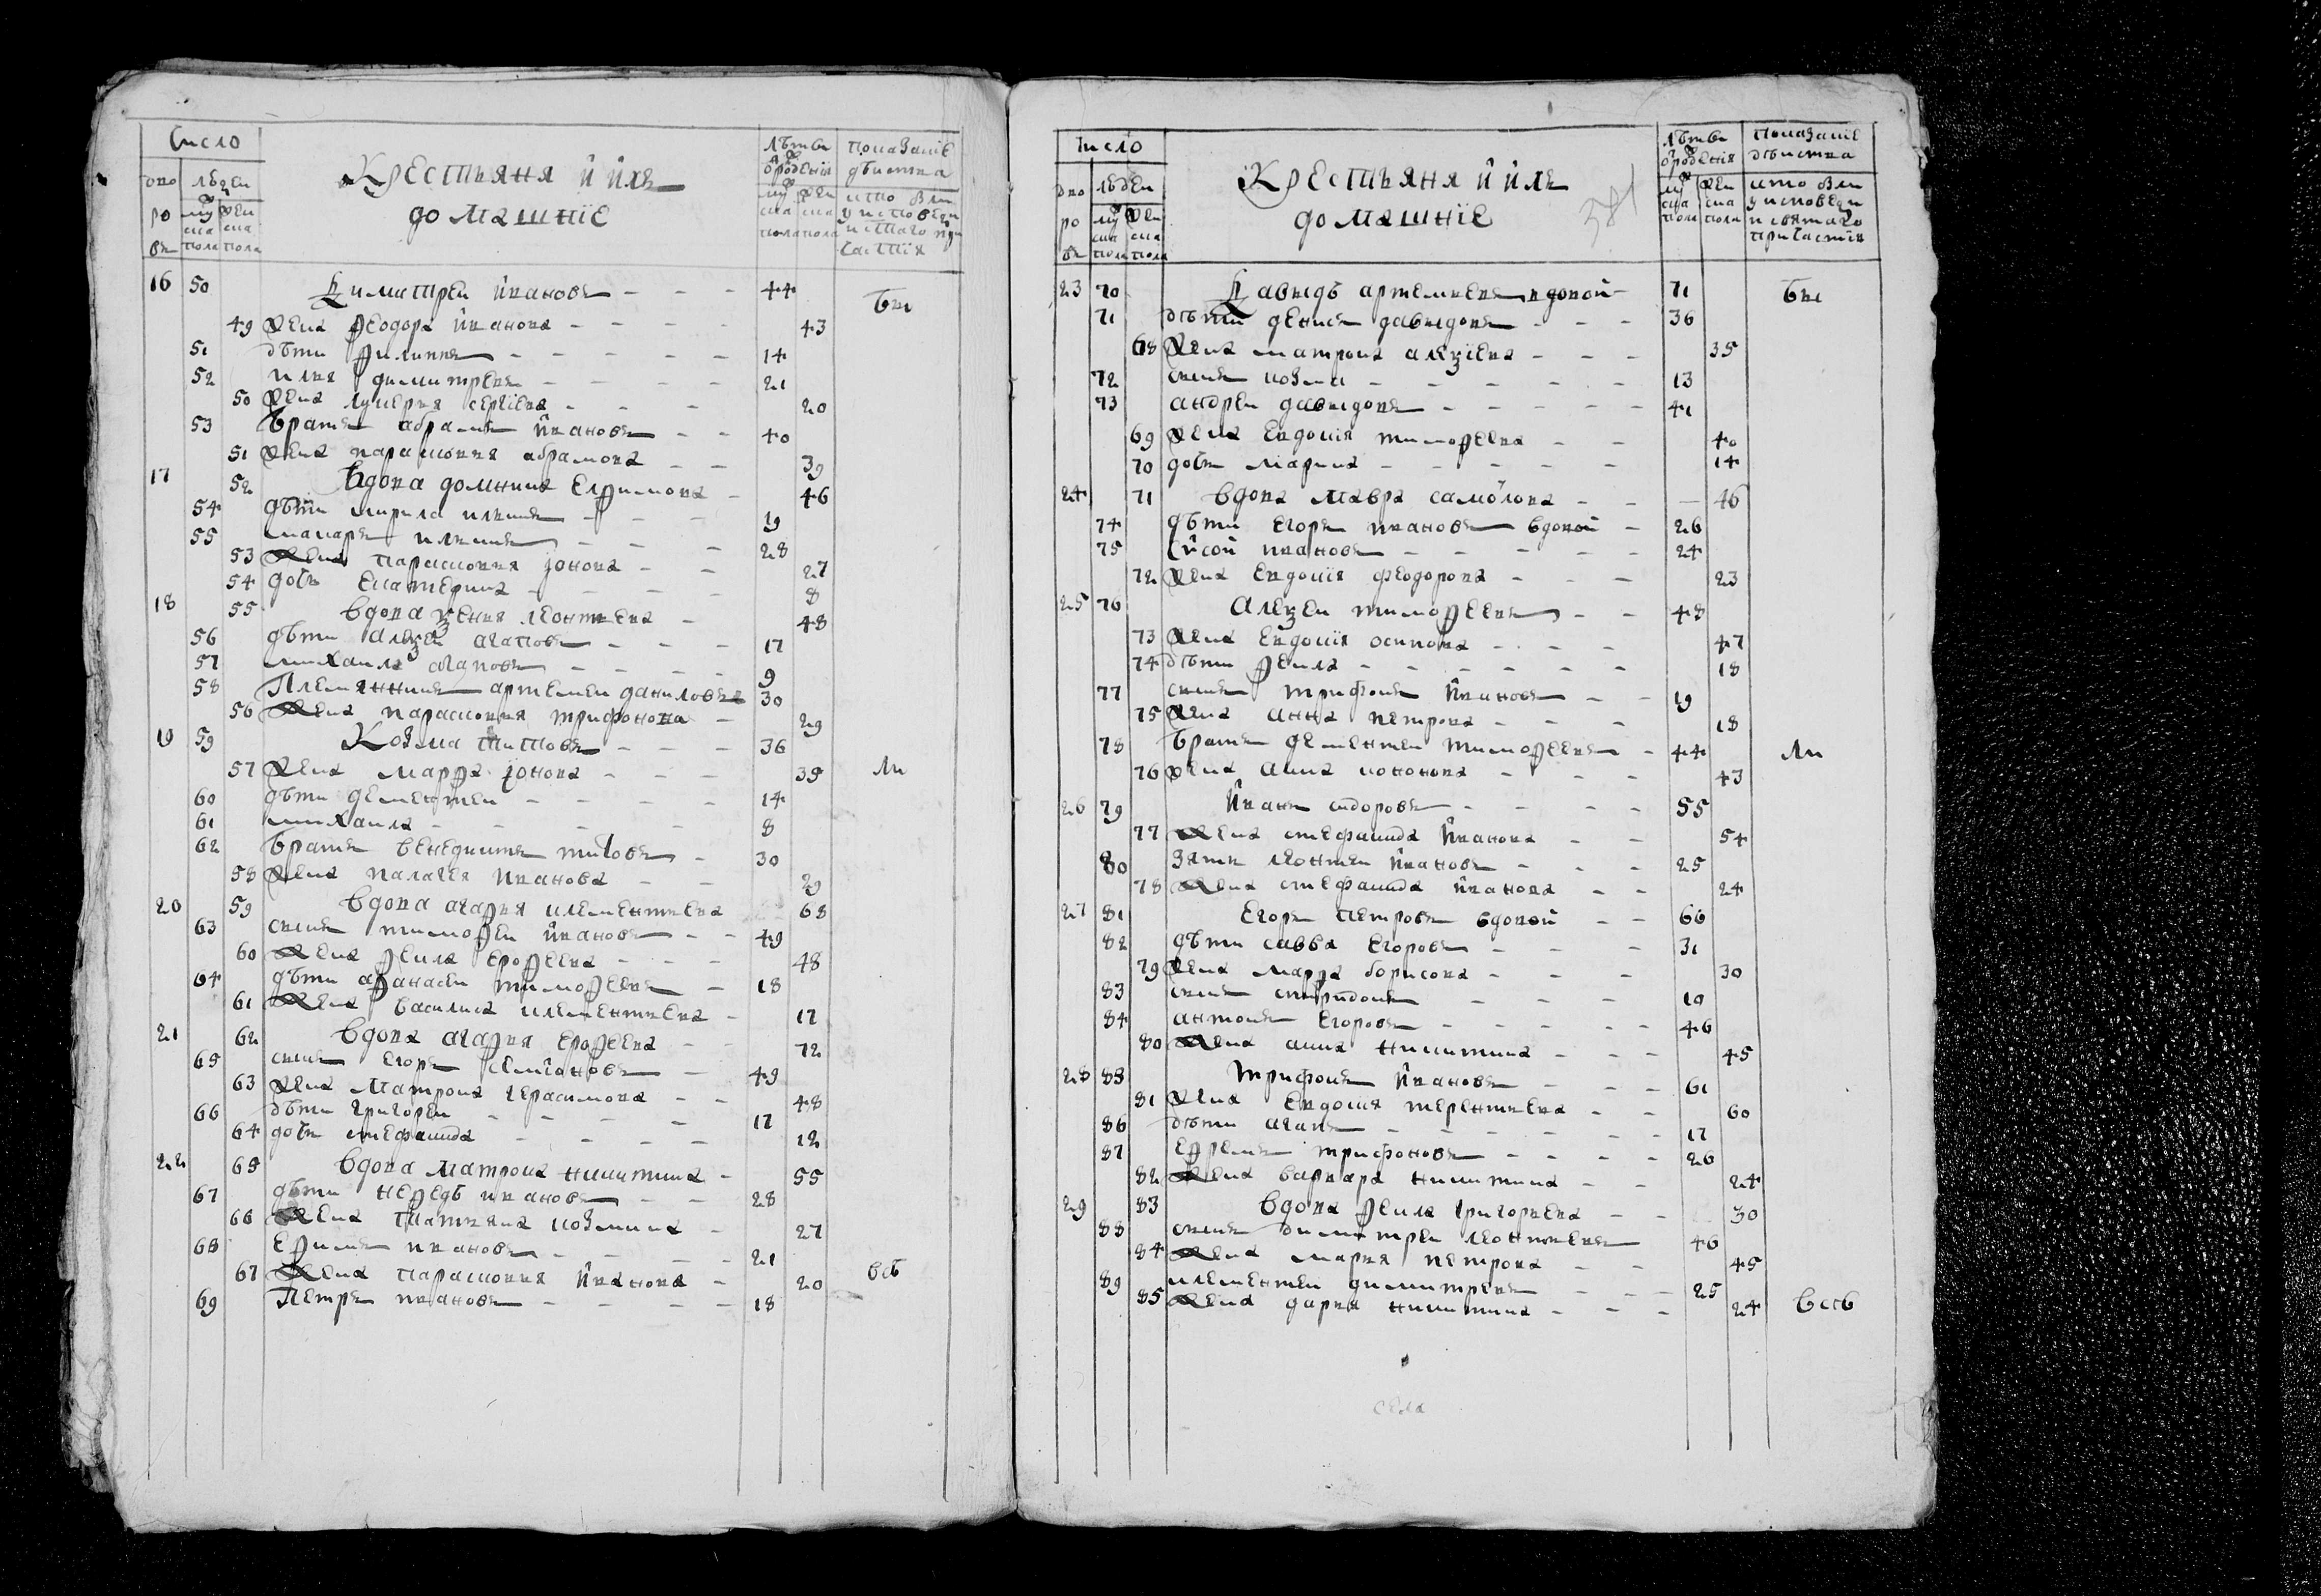 Число
Крестьяня и ихъ
домашніе
Лѣтъ
отъ рожденія
показаніе
дѣйства
дво
ро
въ
людей
муж
ска
пола
жен
ска
пола
муж
ска
пола
жен
ска
пола
кто былъ
у исповеди
и святаго при
частія
16 50 Димитрей Ивановъ 44 бы
49 жена Феодора Иванова 43
51 дѣти Филиппъ 14
52 Илья Димитревъ 21
50 жена Лукерья Сергіева 20
53 братъ Абрамъ Ивановъ 40
51 жена Парасковья Абрамова 39
17 52 Вдова Домника Ефимова 46
54 дѣти Кирила Ильинъ 19
55 Макаръ Ильинъ 28
53 жена Парасковья Іонова 27
54 дочь Екатерина 8
18 55 Вдова Ѯенья Леонтьева 48
56 дѣти Алеѯей Агаповъ 17
57 Михаила Агаповъ 9
58 Племянникъ Артемей Даниловъ 30
56 жена Парасковья Трифонова 29
19 59 Козма Титовъ 36
57 жена Марѳа Іонова 35 ли
60 дѣти Дементей 14
61 Михаила 8
62 братъ Венедиктъ Титовъ 30
58 жена Палагея Иванова 29
20 59 Вдова Агаѳья Клементьева 68
63 сынъ Тимоѳей Ивановъ 49
60 жена Ѳекла Ероѳеева 48
64 дѣти Аѳанасей Тимоѳеевъ 18
61 жена Василиса Клементьева 17
21 62 Вдова Агаѳья Ероѳеева 72
65 сынъ Егоръ Семіоновъ 49
63 жена Матрона Герасимова 48
66 дѣти Григорей 17
64 дочь Стефанида 12
22 65 Вдова Матрона Никитина 55
67 дѣти Неѳедъ Ивановъ 28
66 жена Татьяна Козмина 27
68 Ефимъ Ивановъ 21
67 жена Парасковья Иванова 20 всѣ
69 Петръ Ивановъ 18
Число
Крестьяня и ихъ
домашніе
381
Лѣтъ
отъ рожденія
показаніе
дѣйства
дво
ро
въ
людей
муж
ска
пола
жен
ска
пола
муж
ска
пола
жен
ска
пола
кто былъ
у исповеди
и святаго
причастія
23 70 Давыдъ Артемьевъ вдовой 71 бы
71 дѣти Денисъ Давыдовъ 36
68 жена Матрона Алеѯіева 35
72 сынъ Козма 13
73 Андрей Давыдовъ 41
69 жена Евдокія Тимоѳеева 40
70 дочь Марина 14
24 71 Вдова Мавра Самойлова 46
74 дѣти Егоръ Ивановъ вдовой 26
75 Сисой Ивановъ 24
72 жена Евдокія Феодорова 23
25 76 Алеѯей Тимоѳеевъ 48
73 жена Евдокія Осипова 47
74 дѣти Ѳекла 18
77 сынъ Трифонъ Ивановъ 19
75 жена Анна Петрова 18
78 братъ Дементей Тимоѳеевъ 44 ли
76 жена Анна Кононова 43
26 79 Иванъ Сидоровъ 55
77 жена Стефанида Иванова 54
80 зять Леонтей Ивановъ 25
78 жена Стефанида Иванова 24
27 81 Егоръ Петровъ вдовой 66
82 дѣти Савва Егоровъ 31
79 жена Марѳа Борисова 30
83 сынъ Спиридонъ 10
84 Антонъ Егоровъ 46
80 жена Анна Никитина 45
28 85 Трифонъ Ивановъ 61
81 жена Евдокия Терентьева 60
86 дѣти Агапъ 17
87 Ефремъ Трифоновъ 26
82 жена Варвара Никитина 24
29 83 Вдова Ѳекла Григорьева 30
88 сынъ Димитрей Леонтьевъ 46
84 жена Марья Петрова 45
89 Клементей Димитревъ 25
85 жена Дарья Никитина 24 всѣ
села